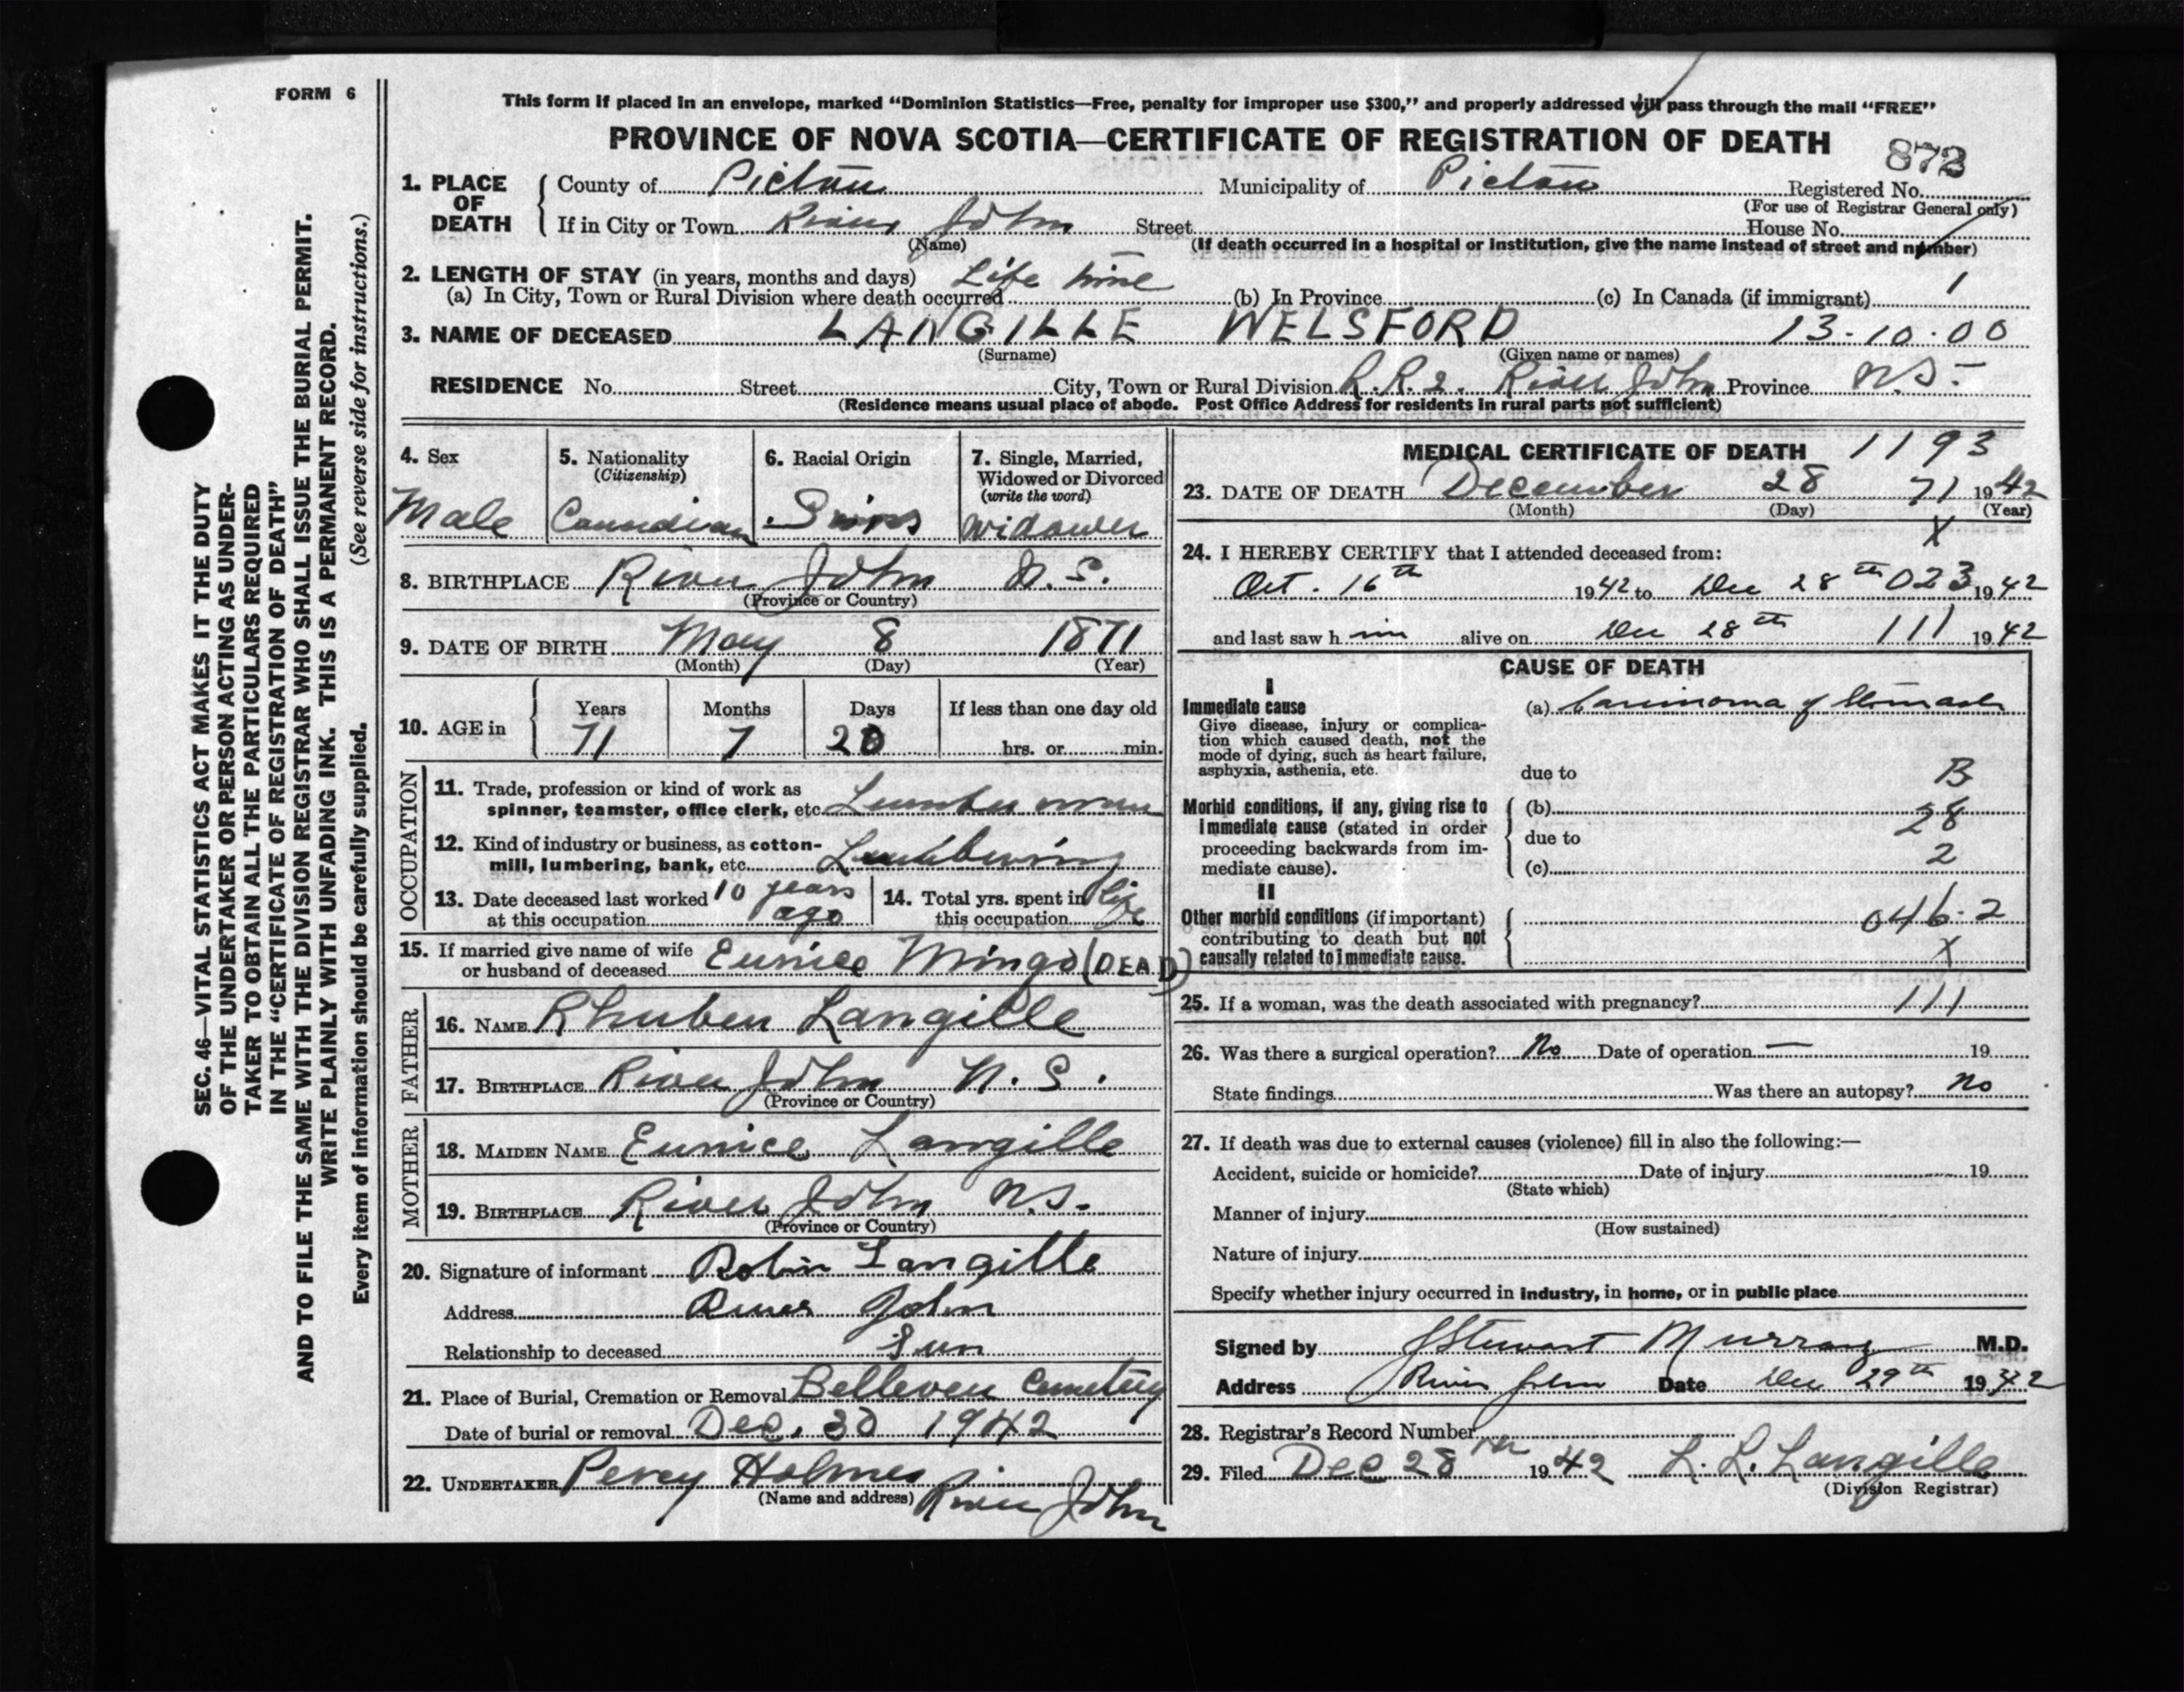 FORM 6
This form if placed in an envelope, marked “Dominion Statistics—Free, penalty for improper use $300,” and properly addressed will pass through the mail “FREE”
PROVINCE OF NOVA SCOTIA—CERTIFICATE OF REGISTRATION OF DEATH
872
1. PLACE OF DEATH
County of Pictou Municipality of Pictou Registered No.
(For use of Registrar General only)
If in City or Town River John Street House No.
(Name) (If death occurred in a hospital or institution, give the name instead of street and number)
2. LENGTH OF STAY (in years, months and days) Life time
(a) In City, Town or Rural Division where death occurred (b) In Province (c) In Canada (if immigrant) 1
3. NAME OF DECEASED LANGILLE WELSFORD 13-10-00
(Surname) (Given name or names)
RESIDENCE No. Street City, Town or Rural Division R.R.2. River John Province N.S.
(Residence means usual place of abode. Post Office Address for residents in rural parts not sufficient)
4. Sex
Male
5. Nationality
(Citizenship)
Canadian
6. Racial Origin
Swiss
7. Single, Married,
Widowed or Divorced
(write the word)
Widower
8. BIRTHPLACE River John N.S.
(Province or Country)
9. DATE OF BIRTH May 8 1871
(Month) (Day) (Year)
10. AGE in
Years Months Days If less than one day old
71 7 20 hrs. or min.
OCCUPATION
11. Trade, profession or kind of work as
spinner, teamster, office clerk, etc. Lumberman
12. Kind of industry or business, as cotton-
mill, lumbering, bank, etc. Lumbering
13. Date deceased last worked 10 years
at this occupation ago
14. Total yrs. spent in
this occupation life
15. If married give name of wife
or husband of deceased Eunice Mingo (DEAD)
FATHER
16. NAME Rhuben Langille
17. BIRTHPLACE River John N.S.
(Province or Country)
MOTHER
18. MAIDEN NAME Eunice Langille
19. BIRTHPLACE River John N.S.
(Province or Country)
20. Signature of informant Robin Langille
Address River John
Relationship to deceased Sun
21. Place of Burial, Cremation or Removal Belleveu Cemetery
Date of burial or removal Dec. 30 1942
22. UNDERTAKER Percy Holmes
(Name and address) River John
MEDICAL CERTIFICATE OF DEATH 1193
23. DATE OF DEATH December 28 71 1942
(Month) (Day) (Year)
X
24. I HEREBY CERTIFY that I attended deceased from:
Oct. 16th 1942 to Dec 28th 023 1942
and last saw him alive on Dec 28th 111 1942
CAUSE OF DEATH
I
Immediate cause
Give disease, injury or complica-
tion which caused death, not the
mode of dying, such as heart failure,
asphyxia, asthenia, etc.
(a) Carcinoma of Stomach
due to B
Morbid conditions, if any, giving rise to
immediate cause (stated in order
proceeding backwards from im-
mediate cause).
(b) 28
due to
(c) 2
II
Other morbid conditions (if important)
contributing to death but not
causally related to immediate cause.
046.2
X
25. If a woman, was the death associated with pregnancy? 111
26. Was there a surgical operation? No Date of operation — 19
State findings Was there an autopsy? No
27. If death was due to external causes (violence) fill in also the following:—
Accident, suicide or homicide? Date of injury 19
(State which)
Manner of injury
(How sustained)
Nature of injury
Specify whether injury occurred in industry, in home, or in public place
Signed by J Stewart Murray M.D.
Address River John Date Dec 29th 1942
28. Registrar's Record Number
29. Filed Dec 28th 1942 L. L. Langille
(Division Registrar)
SEC. 46—VITAL STATISTICS ACT MAKES IT THE DUTY
OF THE UNDERTAKER OR PERSON ACTING AS UNDER-
TAKER TO OBTAIN ALL THE PARTICULARS REQUIRED
IN THE “CERTIFICATE OF REGISTRATION OF DEATH”
AND TO FILE THE SAME WITH THE DIVISION REGISTRAR WHO SHALL ISSUE THE BURIAL PERMIT.
WRITE PLAINLY WITH UNFADING INK. THIS IS A PERMANENT RECORD.
Every item of information should be carefully supplied. (See reverse side for instructions.)